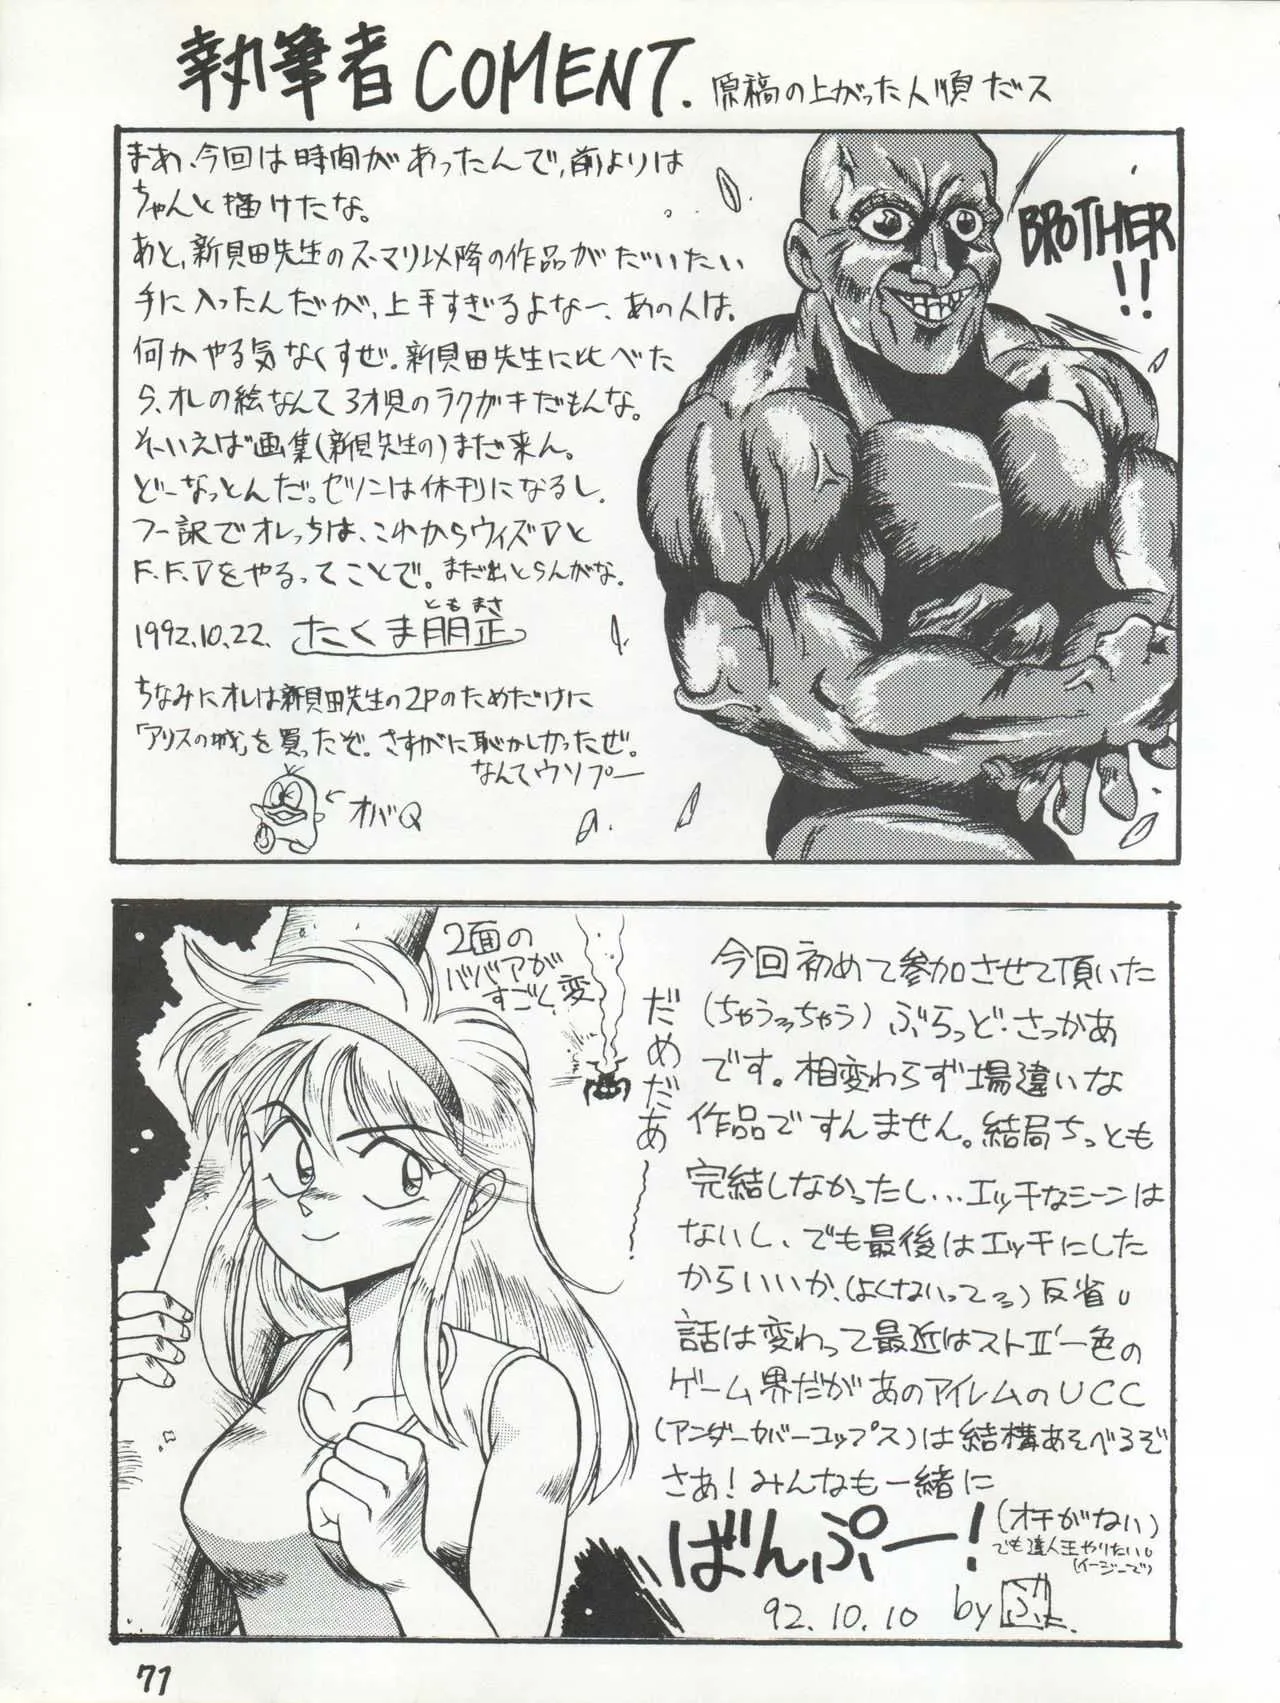 執筆者 COMENT.
原稿の上がった人順だス
まあ、今回は時間があったんで、前よりは
ちゃんと描けたな。
あと、新貝田先生のス・マリ以降の作品がだいたい
手に入ったんだが、上手すぎるよなー、あの人は。
何かやる気なくすぜ。新貝田先生に比べた
ら、オレの絵なんて3才児のラクガキだもんな。
そーいえば画集(新貝先生の)まだ来ん。
どーなっとんだ。ゼノンは休刊になるし、
つー訳でオレっちは、これからウィズVと
F.F.Vをやるってことで。まだ出とらんがな。
1992.10.22. たくま朋正
ともまさ
ちなみにオレは新貝田先生の2Pのためだけに
「アリスの城」を買ったぞ。さすがに恥かしかったぜ。
なんてウソプー
←オバQ
BROTHER
!!
2面の
ババアが
すごく変
だめだあ〜
今回初めて参加させて頂いた
(ちゃうろちゃう) ぶらっど・さっかあ
です。相変わらず場違いな
作品ですんません。結局ちっとも
完結しなかったし…エッチなシーンは
ないし、でも最後はエッチにした
からいいか、(よくないってろ) 反省。
話は変わって最近はストⅡ'一色の
ゲーム界だがあのアイレムのUCC
(アンダーカバーコップス)は結構あそべるぞ
さあ!みんなも一緒に
ばんぷー!
(オチがない)
でも達人王やりたい。
(イージーで)
92.10.10 by
71